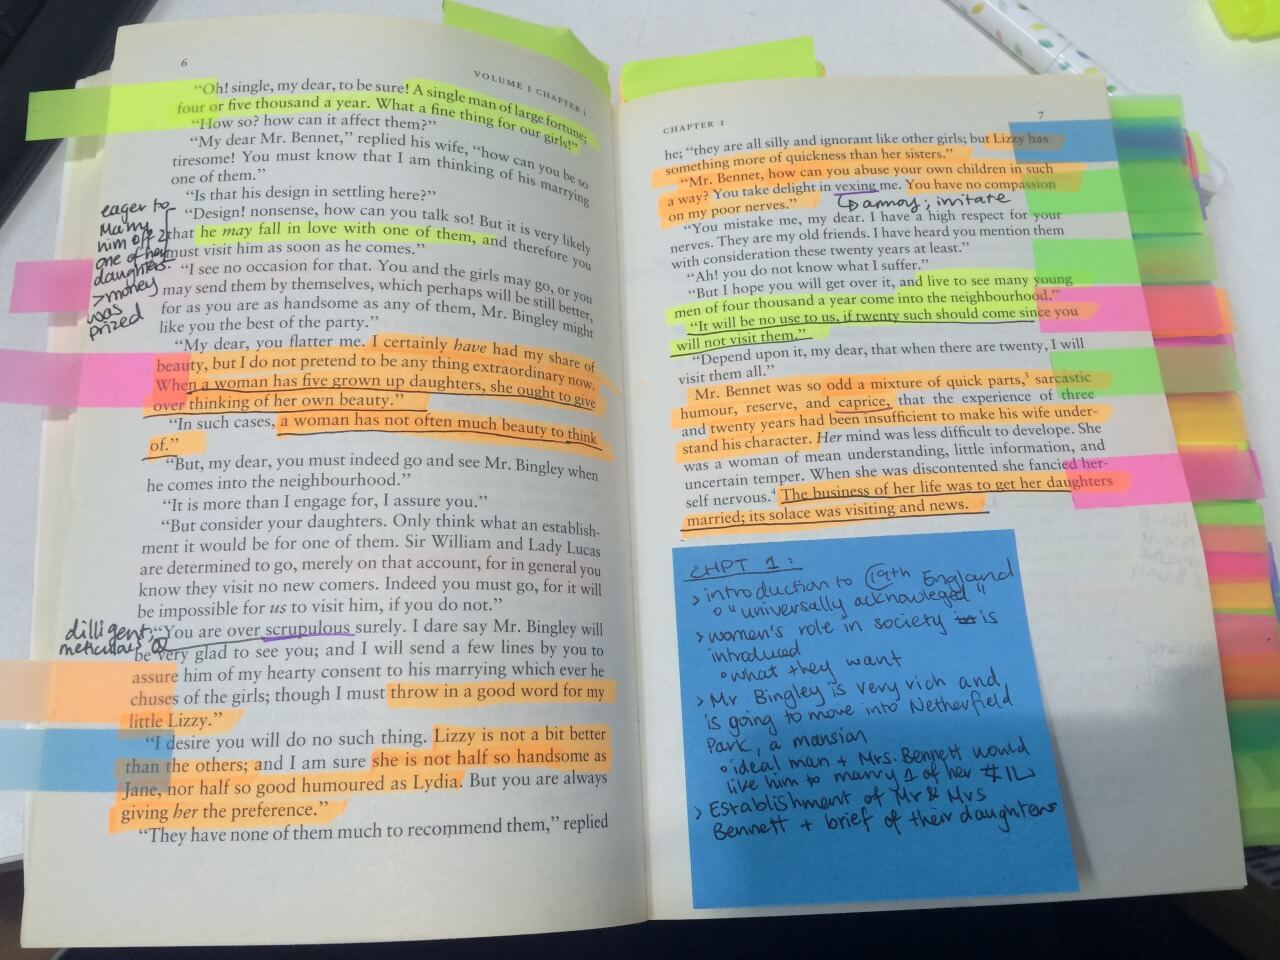 6
VOLUME I CHAPTER I
“Oh! single, my dear, to be sure! A single man of large fortune;
four or five thousand a year. What a fine thing for our girls!”
“How so? how can it affect them?”
“My dear Mr. Bennet,” replied his wife, “how can you be so
tiresome! You must know that I am thinking of his marrying
one of them.”
“Is that his design in settling here?”
“Design! nonsense, how can you talk so! But it is very likely
that he may fall in love with one of them, and therefore you
must visit him as soon as he comes.”
“I see no occasion for that. You and the girls may go, or you
may send them by themselves, which perhaps will be still better,
for as you are as handsome as any of them, Mr. Bingley might
like you the best of the party.”
“My dear, you flatter me. I certainly have had my share of
beauty, but I do not pretend to be any thing extraordinary now.
When a woman has five grown up daughters, she ought to give
over thinking of her own beauty.”
“In such cases, a woman has not often much beauty to think
of.”
“But, my dear, you must indeed go and see Mr. Bingley when
he comes into the neighbourhood.”
“It is more than I engage for, I assure you.”
“But consider your daughters. Only think what an establish-
ment it would be for one of them. Sir William and Lady Lucas
are determined to go, merely on that account, for in general you
know they visit no new comers. Indeed you must go, for it will
be impossible for us to visit him, if you do not.”
“You are over scrupulous surely. I dare say Mr. Bingley will
be very glad to see you; and I will send a few lines by you to
assure him of my hearty consent to his marrying which ever he
chuses of the girls; though I must throw in a good word for my
little Lizzy.”
“I desire you will do no such thing. Lizzy is not a bit better
than the others; and I am sure she is not half so handsome as
Jane, nor half so good humoured as Lydia. But you are always
giving her the preference.”
“They have none of them much to recommend them,” replied
eager to
marry
him off 2
one of her
daughters.
> money
was
prized
dilligent,
meticulous
CHAPTER I
7
he; “they are all silly and ignorant like other girls; but Lizzy has
something more of quickness than her sisters.”
“Mr. Bennet, how can you abuse your own children in such
a way? You take delight in vexing me. You have no compassion
on my poor nerves.”
annoy; irritate
“You mistake me, my dear. I have a high respect for your
nerves. They are my old friends. I have heard you mention them
with consideration these twenty years at least.”
“Ah! you do not know what I suffer.”
“But I hope you will get over it, and live to see many young
men of four thousand a year come into the neighbourhood.”
“It will be no use to us, if twenty such should come since you
will not visit them.”
“Depend upon it, my dear, that when there are twenty, I will
visit them all.”
Mr. Bennet was so odd a mixture of quick parts,³ sarcastic
humour, reserve, and caprice, that the experience of three
and twenty years had been insufficient to make his wife under-
stand his character. Her mind was less difficult to develope. She
was a woman of mean understanding, little information, and
uncertain temper. When she was discontented she fancied her-
self nervous.⁴ The business of her life was to get her daughters
married; its solace was visiting and news.
CHPT 1:
> introduction to 19th England
o "universally acknowleged"
> women's role in society is
introduced
o what they want
> Mr Bingley is very rich and
is going to move into Netherfield
Park, a mansion
o ideal man + Mrs. Bennett would
like him to marry 1 of her
> Establishment of Mr & Mrs
Bennett + brief of their daughters